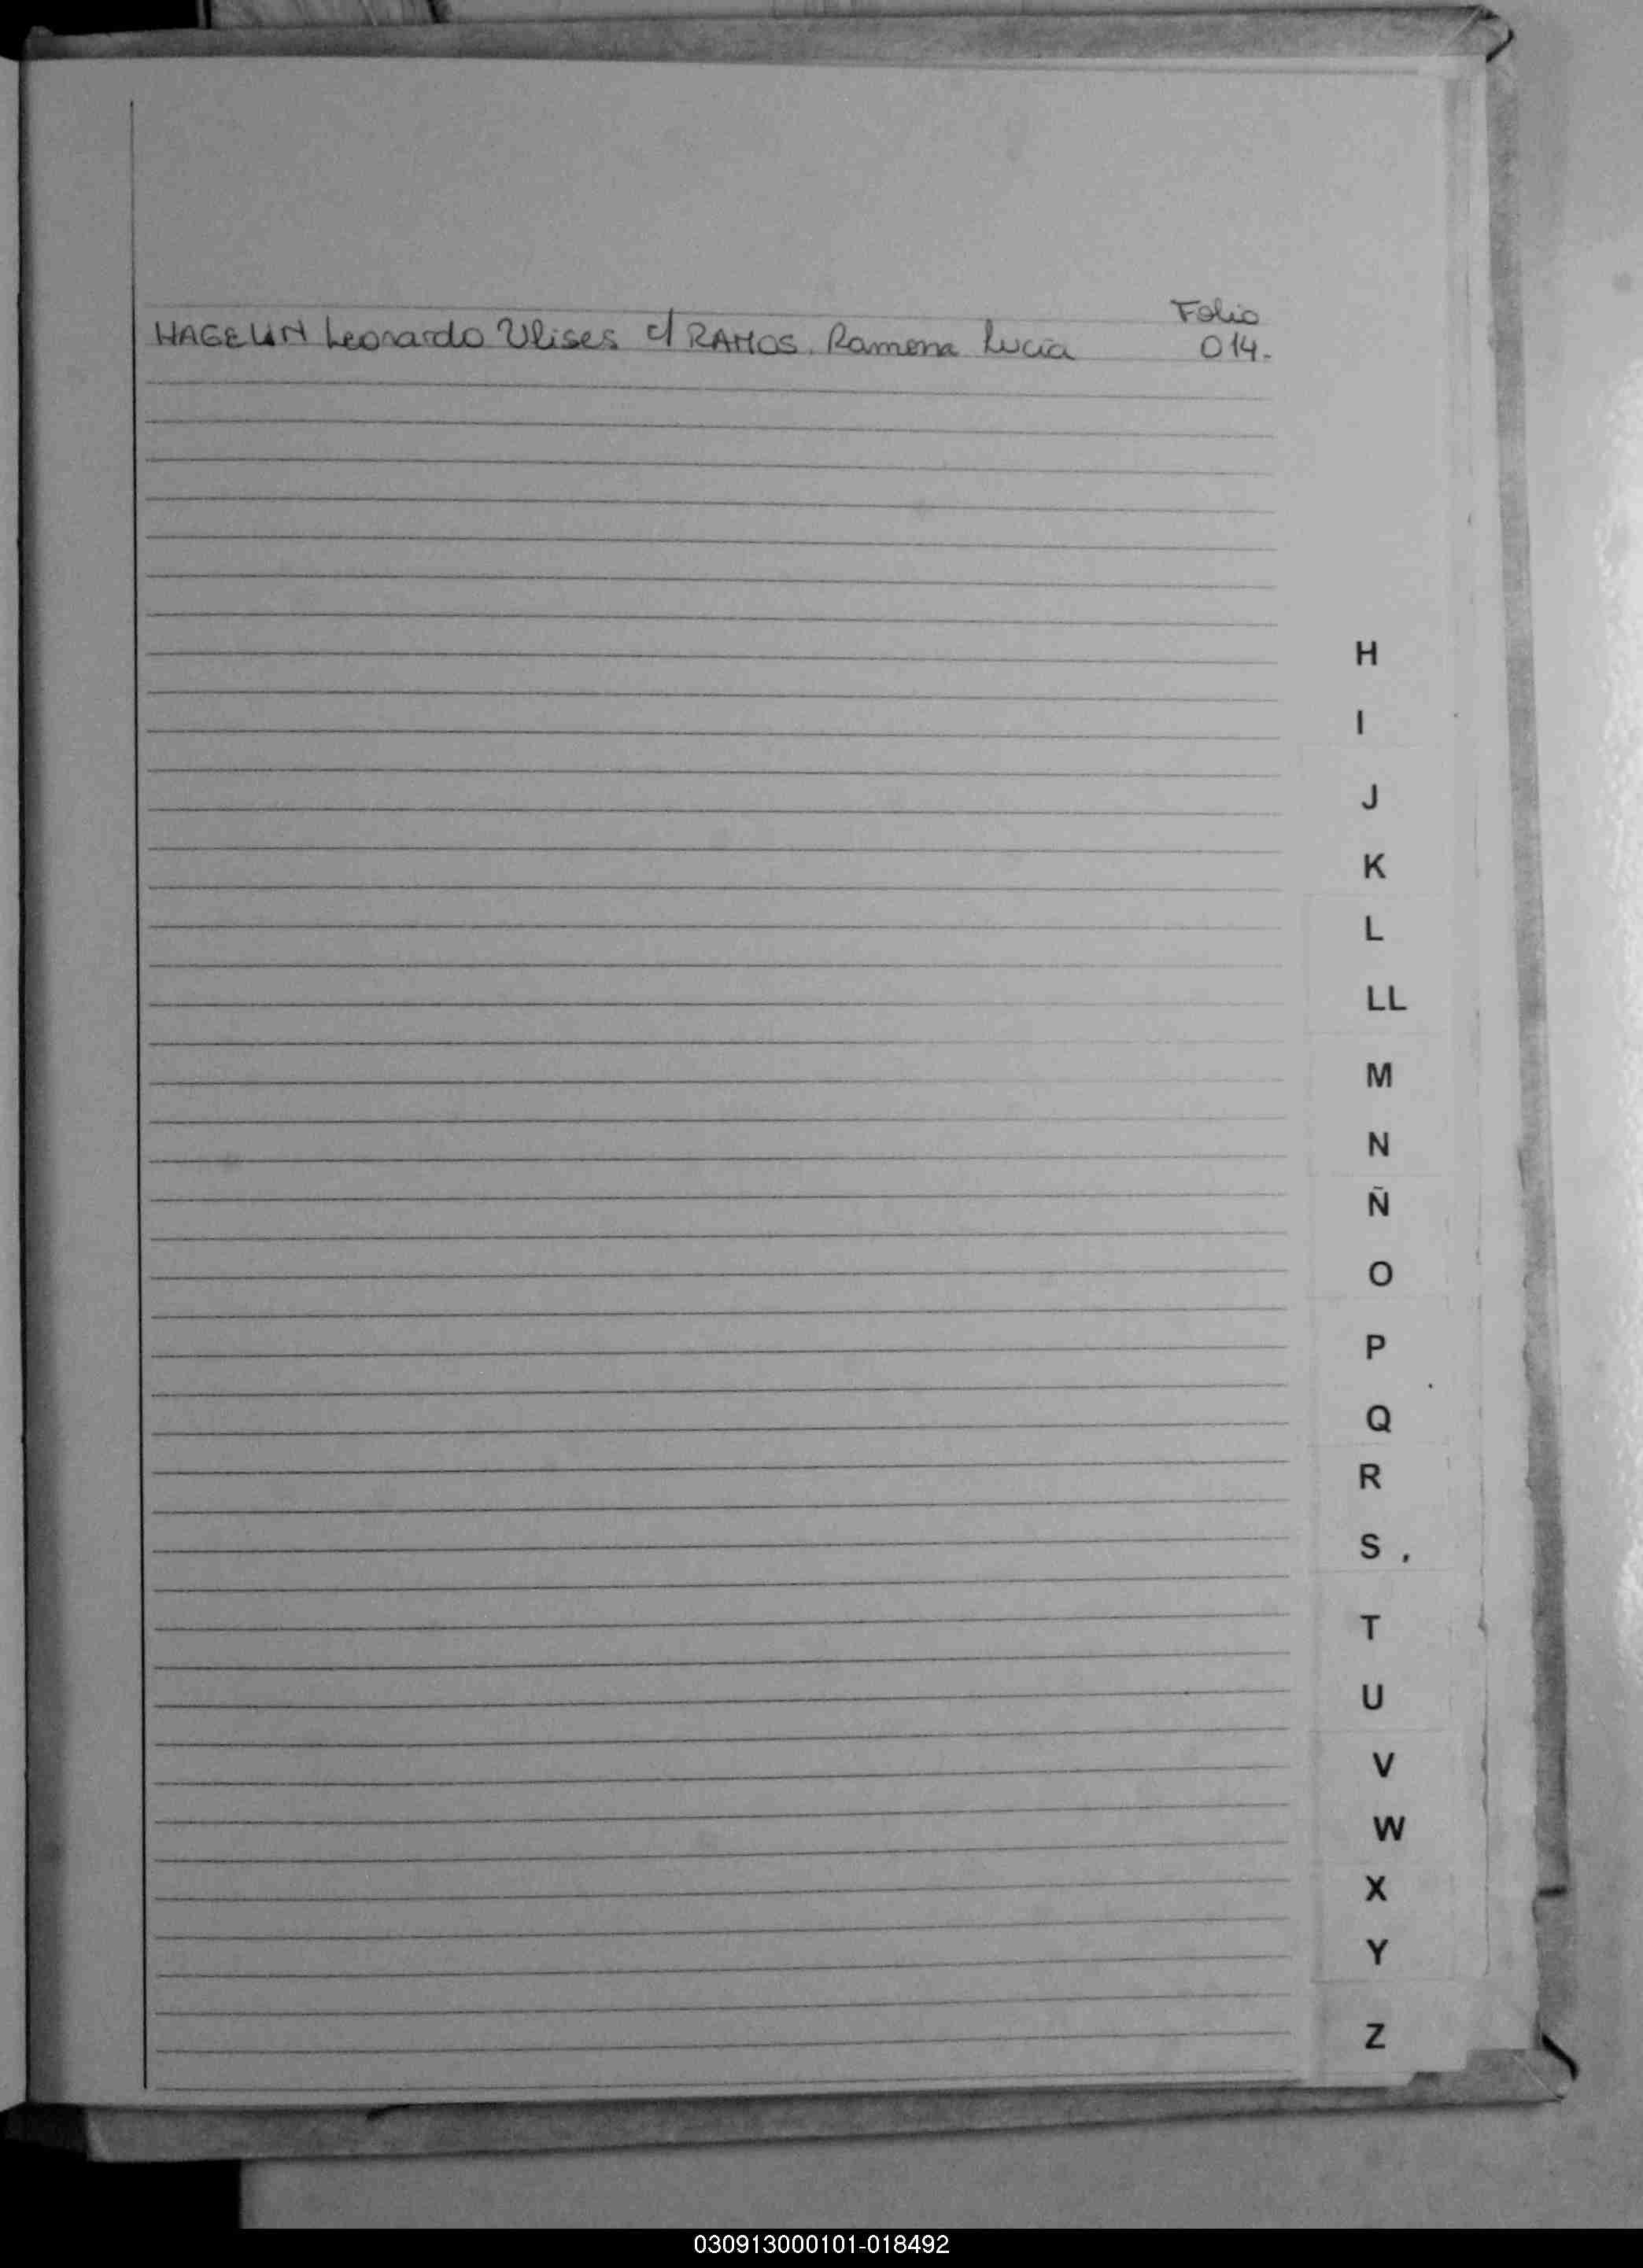 Folio
HAGELIN Leonardo Ulises c/ RAMOS. Ramona Lucia 014.-
H
I
J
K
L
LL
M
N
Ñ
O
P
Q
R
S
T
U
V
W
X
Y
Z
030913000101-018492